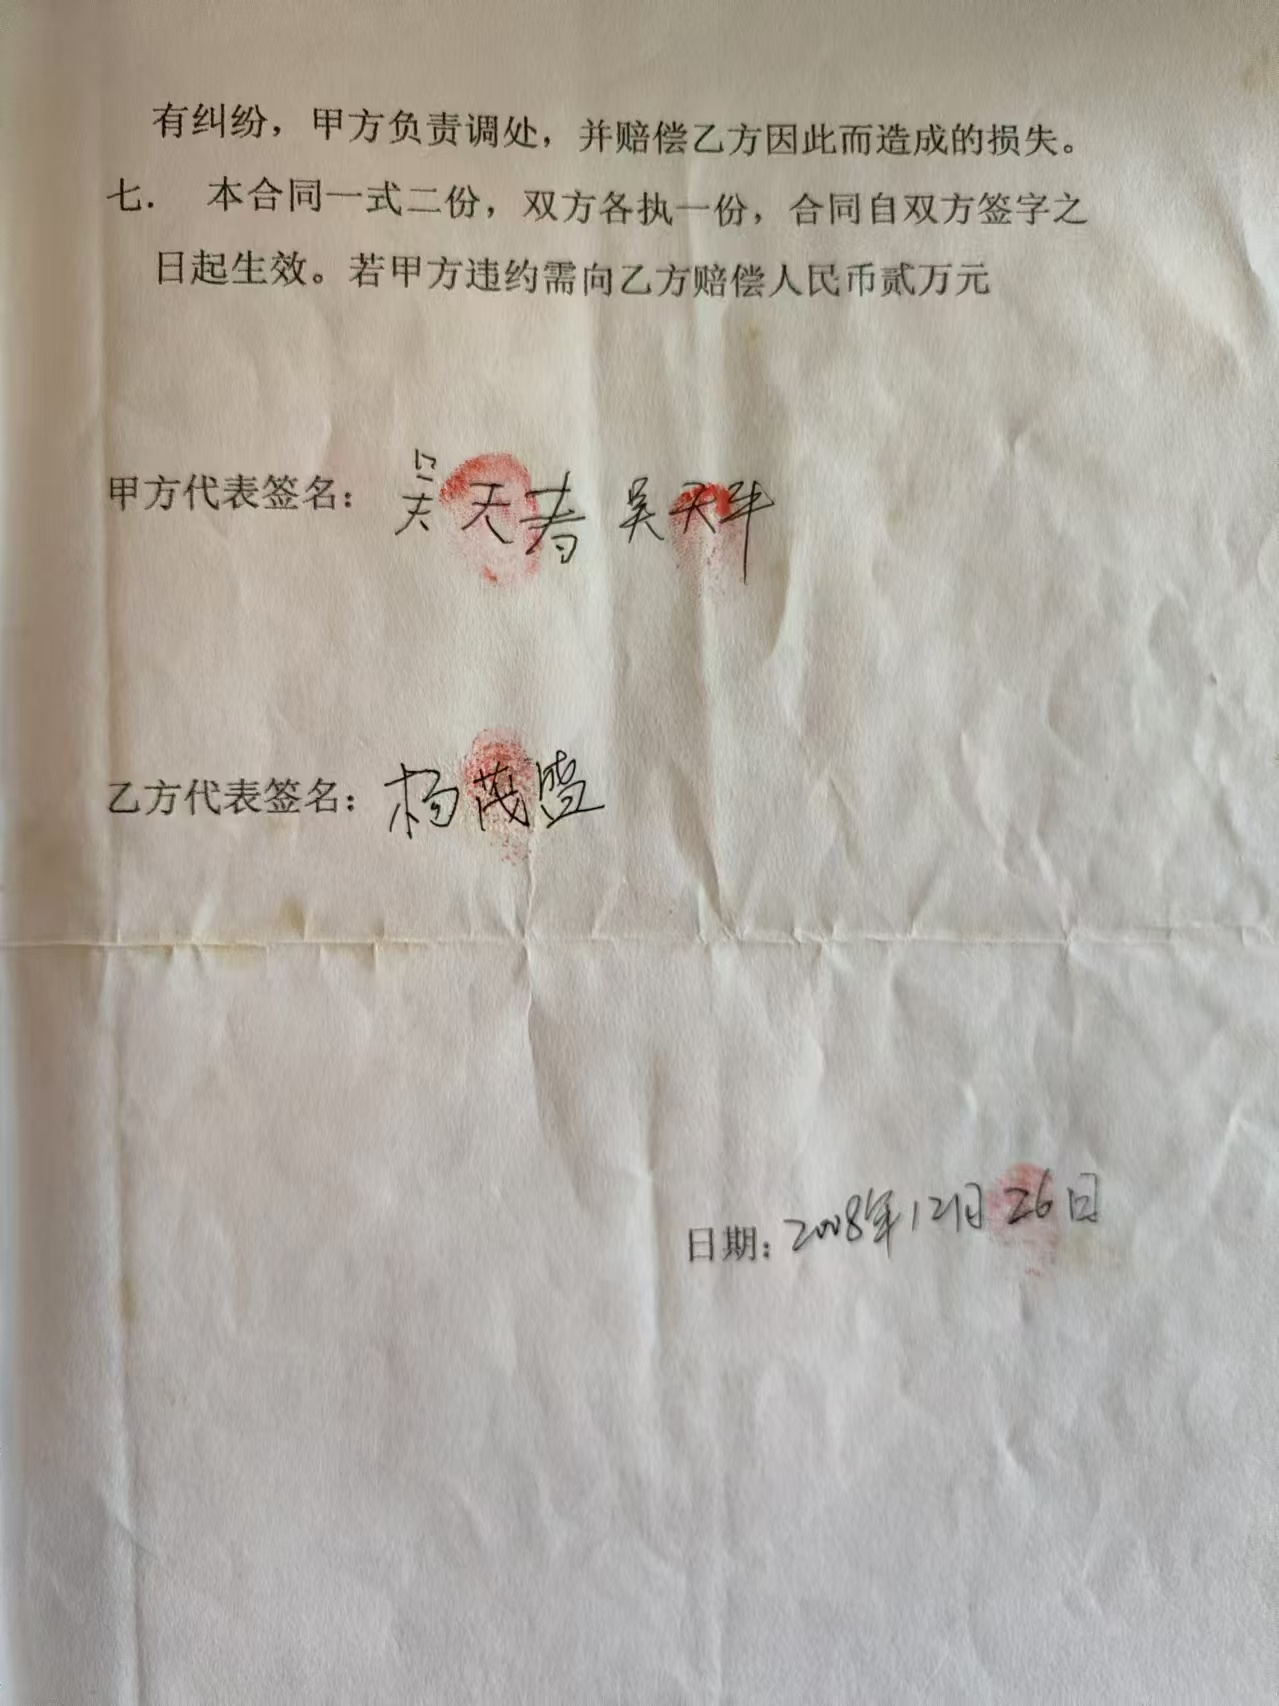 有纠纷，甲方负责调处，并赔偿乙方因此而造成的损失。
七． 本合同一式二份，双方各执一份，合同自双方签字之
日起生效。若甲方违约需向乙方赔偿人民币贰万元
甲方代表签名： 吴天寿 吴天平
乙方代表签名： 杨茂
日期：2008年12月26日